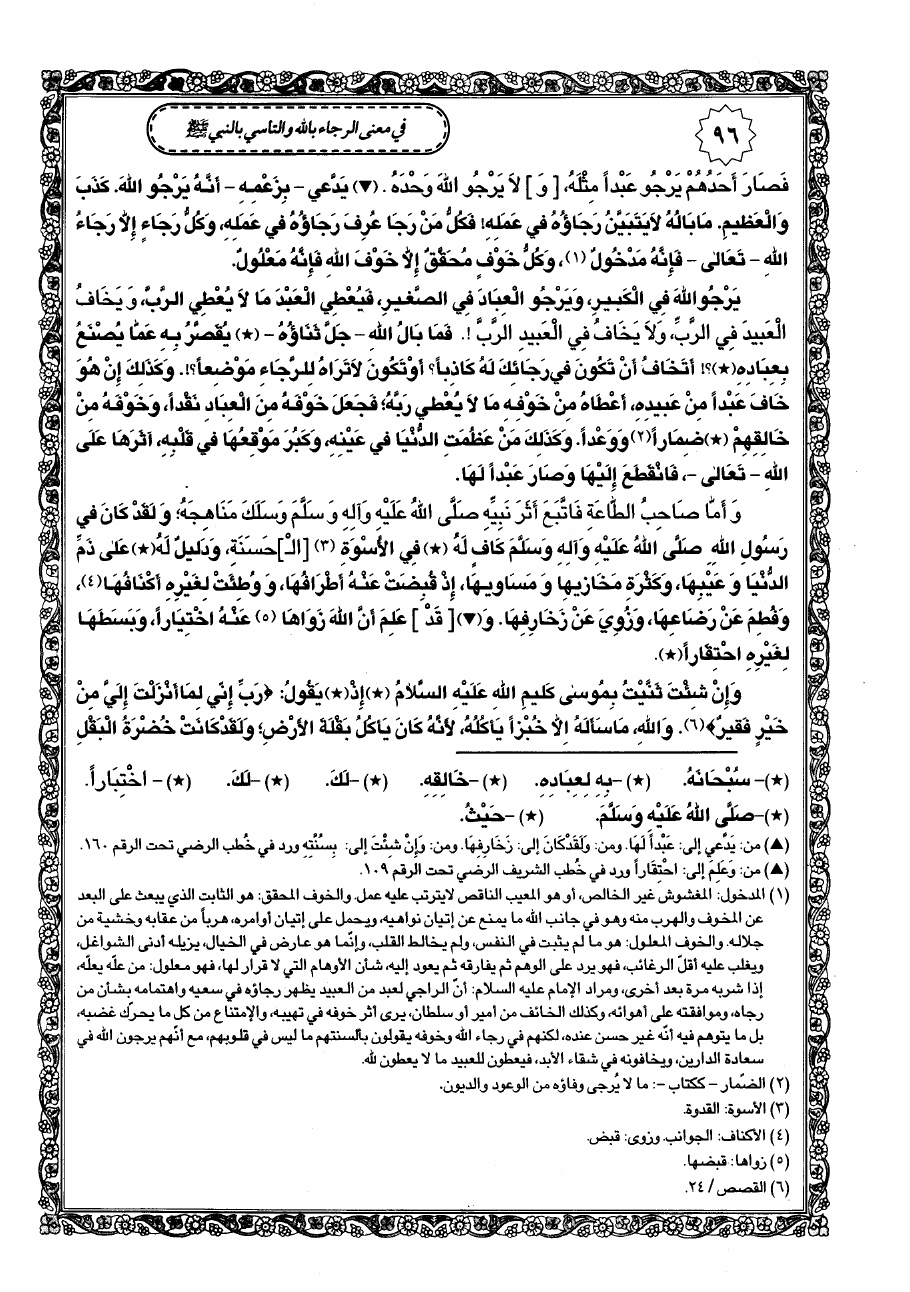 ٩٦
في معنى الرجاء بالله والتأسي بالنبي ﷺ
فَصَارَ أَحَدُهُمْ يَرْجُو عَبْداً مِثْلَهُ، [وَ] لاَ يَرْجُو اللهَ وَحْدَهُ. (▼) يَدَّعي - بِزَعْمِهِ - أَنَّهُ يَرْجُو اللهَ. كَذَبَ
وَالْعَظيمِ. مَابَالُهُ لاَيَتَبَيَّنُ رَجَاؤُهُ في عَمَلِهِ! فَكُلُّ مَنْ رَجَا عُرِفَ رَجَاؤُهُ في عَمَلِهِ، وَكُلُّ رَجَاءٍ إِلاَّ رَجَاءَ
اللهِ - تَعَالى - فَإِنَّهُ مَدْخُولٌ (١)، وَكُلُّ خَوْفٍ مُحَقَّقٌ إِلاَّ خَوْفَ اللهِ فَإِنَّهُ مَعْلُولٌ.
يَرْجُو اللهَ في الْكَبيرِ، وَيَرْجُو الْعِبَادَ في الصَّغيرِ، فَيُعْطِي الْعَبْدَ مَا لاَ يُعْطِي الرَّبَّ، وَ يَخَافُ
الْعَبيدَ في الرَّبِّ، وَلاَ يَخَافُ في الْعَبيدِ الرَّبَّ !. فَمَا بَالُ اللهِ - جَلَّ ثَنَاؤُهُ - (★) يُقَصَّرُ بِهِ عَمَّا يُصْنَعُ
بِعِبَادِهِ(★)؟! أَتَخَافُ أَنْ تَكُونَ في رَجَائِكَ لَهُ كَاذِباً؟ أَوْ تَكُونَ لاَتَرَاهُ لِلرَّجَاءِ مَوْضِعاً؟!. وَكَذَلِكَ إِنْ هُوَ
خَافَ عَبْداً مِنْ عَبيدِهِ، أَعْطَاهُ مِنْ خَوْفِهِ مَا لاَ يُعْطي رَبَّهُ؛ فَجَعَلَ خَوْفَهُ مِنَ الْعِبَادِ نَقْداً، وَخَوْفَهُ مِنْ
خَالِقِهِمْ (★)ضِمَاراً(٢) وَوَعْداً. وَكَذَلِكَ مَنْ عَظُمَتِ الدُّنْيَا في عَيْنِهِ، وَكَبُرَ مَوْقِعُهَا في قَلْبِهِ، آثَرَهَا عَلَى
اللهِ - تَعَالى -، فَانْقَطَعَ إِلَيْهَا وَصَارَ عَبْداً لَهَا.
وَ أَمَّا صَاحِبُ الطَّاعَةِ فَاتَّبَعَ أَثَرَ نَبِيِّهِ صَلَّى اللهُ عَلَيْهِ وَآلِهِ وَ سَلَّمَ وَسَلَكَ مَنَاهِجَهُ؛ وَ لَقَدْ كَانَ في
رَسُولِ اللهِ صَلَّى اللهُ عَلَيْهِ وَآلِهِ وَسَلَّمَ كَافٍ لَهُ (★) في الأُسْوَةِ (٣) [الـ]حَسَنَةِ، وَدَليلٌ لَهُ(★)عَلى ذَمِّ
الدُّنْيَا وَ عَيْبِهَا، وَكَثْرَةِ مَخَازيهَا وَ مَسَاويهَا، إِذْ قُبِضَتْ عَنْهُ أَطْرَافُهَا، وَ وُطِّئَتْ لِغَيْرِهِ أَكْنَافُهَا(٤)،
وَفُطِمَ عَنْ رَضَاعِهَا، وَزُوِيَ عَنْ زَخَارِفِهَا. وَ(▼)[ قَدْ ] عَلِمَ أَنَّ اللهَ زَوَاهَا (٥) عَنْهُ اخْتِيَاراً، وَبَسَطَهَا
لِغَيْرِهِ احْتِقَاراً(★).
وَإِنْ شِئْتَ ثَنَّيْتُ بِمُوسَى كَليمِ اللهِ عَلَيْهِ السَّلاَمُ (★)إِذْ(★)يَقُولُ: ﴿رَبِّ إِنّي لِمَا أَنْزَلْتَ إِلَيَّ مِنْ
خَيْرٍ فَقيرٌ﴾(٦). وَاللهِ، مَاسَأَلَهُ إِلاَّ خُبْزاً يَأْكُلُهُ، لأَنَّهُ كَانَ يَأْكُلُ بَقْلَةَ الأَرْضِ؛ وَلَقَدْ كَانَتْ خُضْرَةُ الْبَقْلِ
(★)- سُبْحَانَهُ. (★) -بِهِ لِعِبَادِهِ. (★)- خَالِقِهِ. (★) -لَكَ. (★) -لَكَ. (★) - اخْتِبَاراً.
(★)-صَلَّى اللهُ عَلَيْهِ وَسَلَّمَ. (★) -حَيْثُ.
(▲) من: يَدَّعي إلى: عَبْداً لَهَا. ومن: وَلَقَدْكَانَ إلى: زَخَارِفِهَا. ومن: وَإِنْ شِئْتَ إلى: بِسُنَّتِهِ ورد في خُطب الرضي تحت الرقم ١٦٠.
(▲) من: وَعَلِمَ إلى: احْتِقَاراً ورد في خُطب الشريف الرضي تحت الرقم ١٠٩.
(١) المدخول: المغشوش غير الخالص، أو هو المعيب الناقص لايترتب عليه عمل. والخوف المحقق: هو الثابت الذي يبعث على البعد
عن المخوف والهرب منه وهو في جانب الله ما يمنع عن إتيان نواهيه، ويحمل على إتيان أوامره، هرباً من عقابه وخشية من
جلاله. والخوف المعلول: هو ما لم يثبت في النفس، ولم يخالط القلب، وإنّما هو عارض في الخيال، يزيله أدنى الشواغل،
ويغلب عليه أقلّ الرغائب، فهو يرد على الوهم ثم يفارقه ثم يعود إليه، شأن الأوهام التي لا قرار لها، فهو معلول: من علّه يعلّه،
إذا شربه مرة بعد أخرى، ومراد الإمام عليه السلام: أنّ الراجي لعبد من العبيد يظهر رجاؤه في سعيه واهتمامه بشأن من
رجاه، وموافقته على أهوائه، وكذلك الخائف من أمير أو سلطان، يرى أثر خوفه في تهيبه، والإمتناع من كل ما يحرّك غضبه،
بل ما يتوهم فيه أنّه غير حسن عنده، لكنهم في رجاء الله وخوفه يقولون بألسنتهم ما ليس في قلوبهم، مع أنّهم يرجون الله في
سعادة الدارين، ويخافونه في شقاء الأبد، فيعطون للعبيد ما لا يعطون لله.
(٢) الضّمار - ككتاب -: ما لا يُرجى وفاؤه من الوعود والديون.
(٣) الأسوة: القدوة.
(٤) الأكناف: الجوانب. وزوى: قبض.
(٥) زواها: قبضها.
(٦) القصص / ٢٤.